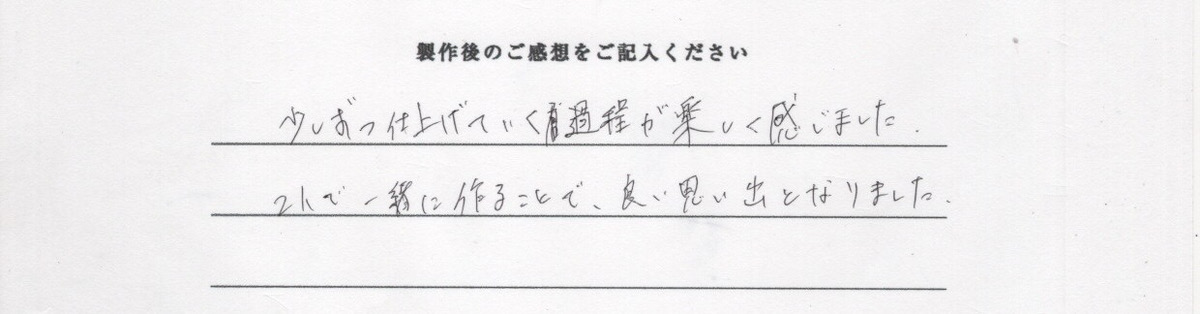 製作後のご感想をご記入ください
少しずつ仕上げていく過程が楽しく感じました.
2人で一緒に作ることで、良い思い出となりました.